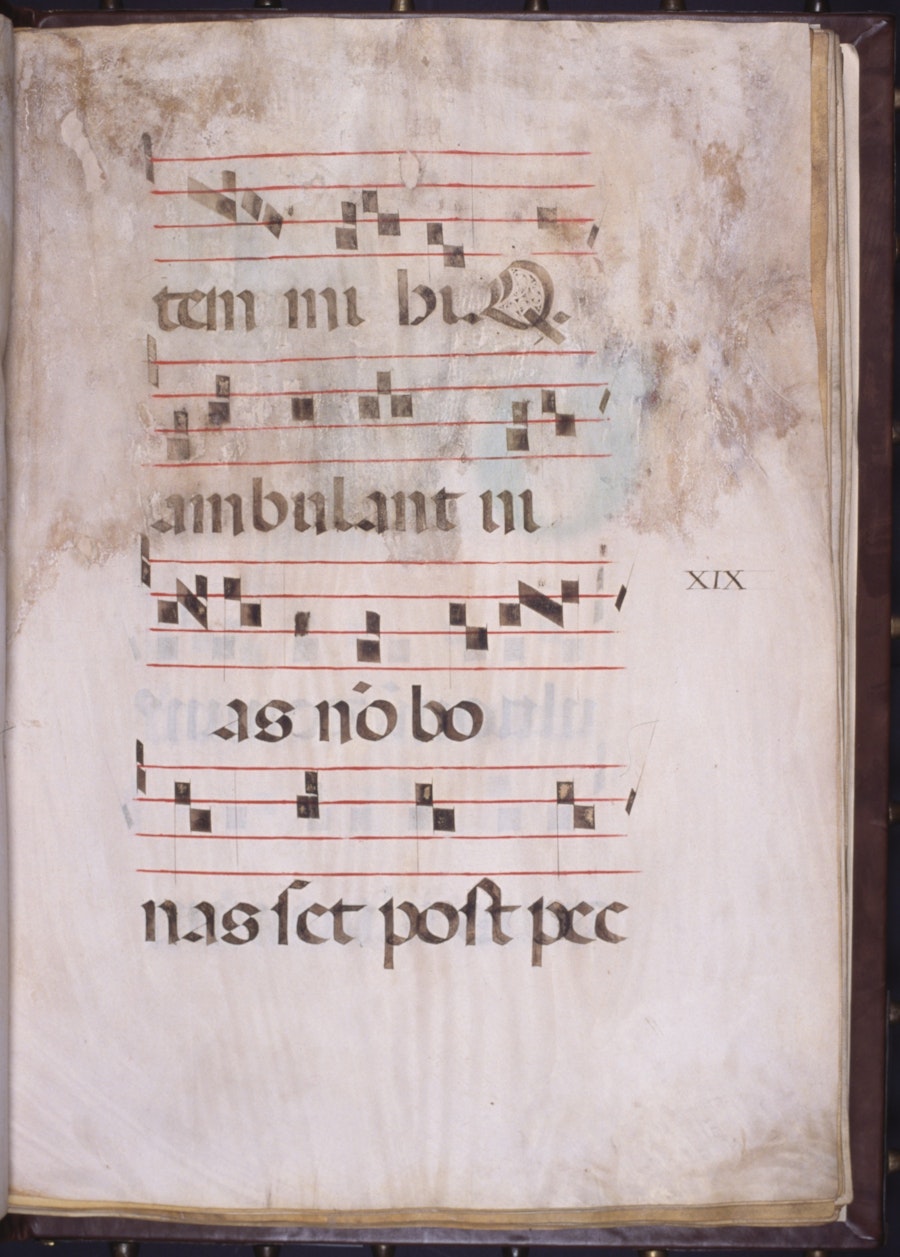 tem mi bi. Q.
ambulant in
as nō bo
XIX
nas set post pec